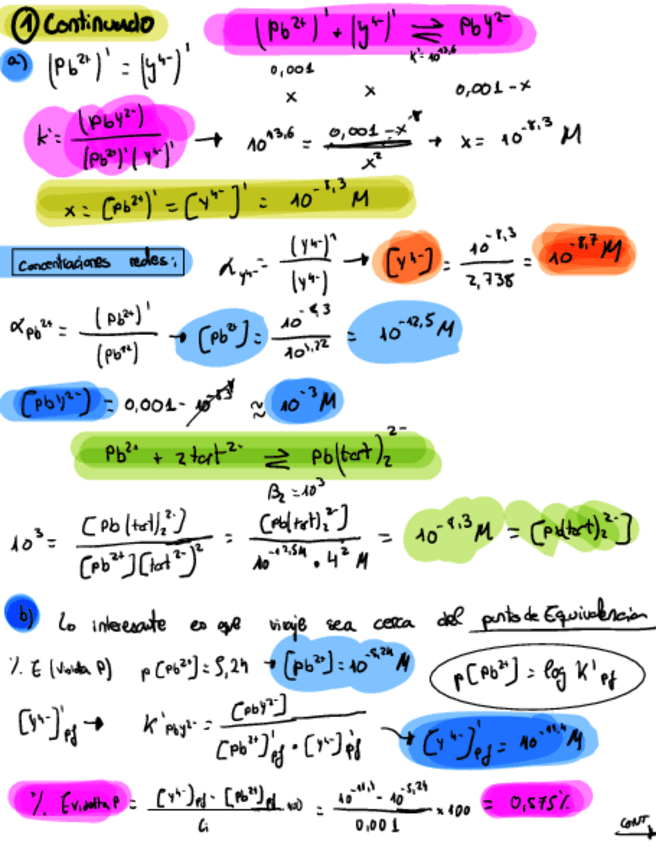 ① Continuando (Pb²⁺)' + (y⁴⁻)' ⇌ Pby²⁻
a) (Pb²⁺)' = (y⁴⁻)' K' = 10¹³,⁶
0,001
x x 0,001-x
K' = (Pby²⁻) / (Pb²⁺)'(y⁴⁻)' → 10¹³,⁶ = 0,001-x / x² → x = 10⁻⁸,³ M
x = [Pb²⁺]' = [y⁴⁻]' = 10⁻⁸,³ M
Concentraciones reales: α y⁴⁻ = (y⁴⁻)' / (y⁴⁻) → [y⁴⁻] = 10⁻⁸,³ / 2,738 = 10⁻⁸,⁷ M
α Pb²⁺ = (Pb²⁺)' / (Pb²⁺) → [Pb²⁺] = 10⁻⁸,³ / = 10⁻¹²,⁵ M
[Pby²⁻] = 0,001 - 10⁻⁸,³ ≈ 10⁻³ M
Pb²⁺ + 2 tart²⁻ ⇌ Pb(tart)₂²⁻
β₂ = 10³
10³ = [Pb(tart)₂²⁻] / [Pb²⁺][tart²⁻]² = [Pb(tart)₂²⁻] / 10⁻¹²,⁵ᴹ · 4² M = 10⁻⁸,³ M = [Pb(tart)₂²⁻]
b) Lo interesante es que viraje sea cerca del punto de Equivalencia
% E (Violeta P) p[Pb²⁺] = 5,24 → [Pb²⁺] = 10⁻⁵,²⁴ M p[Pb²⁺] = log K' pf
[y⁴⁻]'pf → K' Pby²⁻ = [Pby²⁻] / [Pb²⁺]'pf · [y⁴⁻]'pf → [y⁴⁻]'pf = M
% E violeta P = [y⁴⁻]pf - [Pb²⁺]pf / Ci = - 10⁻⁵,²⁴ / 0,001 × 100 = 0,575%
CONT.